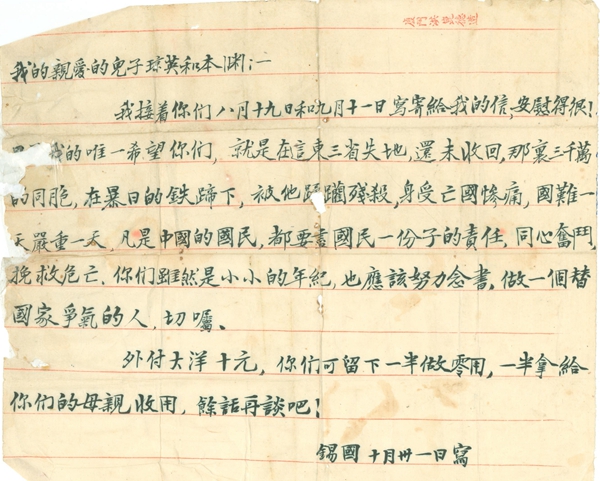 我的親愛的兒子琼英和本渊:—
我接着你們八月十九日和九月十一日寫寄給我的信,安慰得很!
我的唯一希望你們,就是在這東三省失地,還未收回,那裏三千萬
的同胞,在暴日的鉄蹄下,被他蹂躪殘殺,身受亡國慘痛,國難一
天嚴重一天,凡是中國的國民,都要盡國民一份子的責任,同心奮鬥,
挽救危亡、你們雖然是小小的年紀,也應該努力念書,做一個替
國家爭氣的人,切囑、
外付大洋十元,你們可留下一半做零用,一半拿給
你們的母親收用,餘話再談吧!
錫國 十月卅一日寫